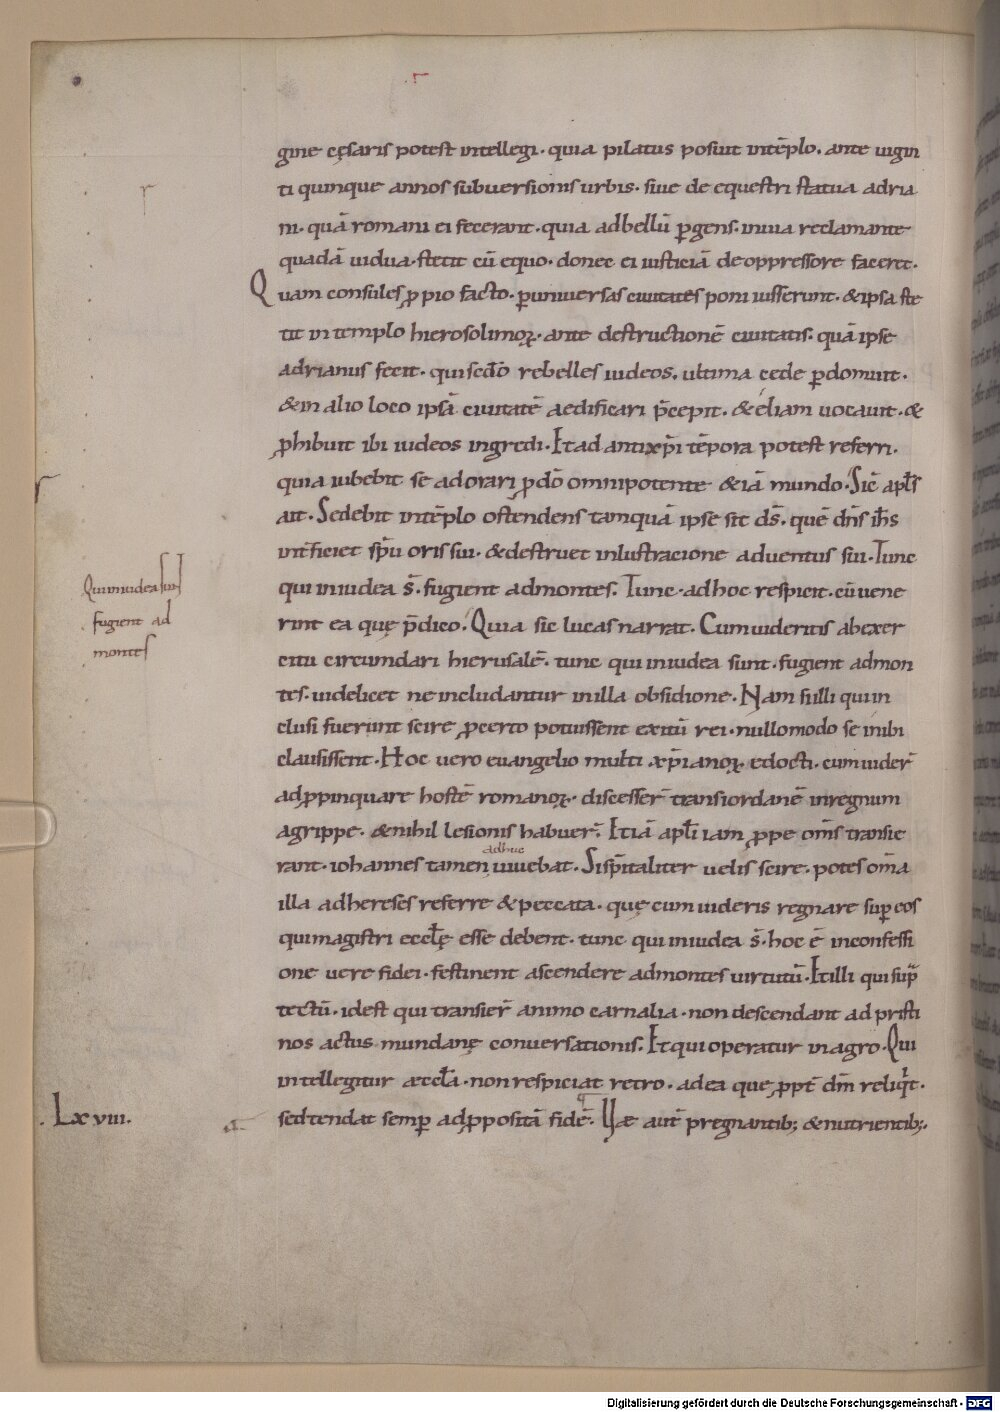 gine cęsaris potest intellegi· quia pilatus posuit intēplo. ante uigin
ti quinque annos subuersionis urbis· siue de equestri statua adria
ni· quā romani ei fecerant· quia adbellū ꝑgens· inuia reclamante
quadā uidua· stetit cū equo· donec ei iusticiā deoppressore faceret·
Quam consules ꝓ pio facto· ꝑuniuersas ciuitates poni iusserunt· &ipsa ste
tit in templo hierosolimoꝝ· ante destructionē ciuitatis· quā ipse
adrianus fecit· qui sedō rebelles iudeos. ultima cede ꝑdomuit·
&in alio loco ipsā ciuitatē aedificari p̄cepit· & eliam uocauit· &
ꝓhibuit ibi iudeos ingredi· Et ad antixp̄i tēpora potest referri·
quia iubebit se adorari ꝓdō omnipotente & iā mundo· Sic̄ apl̄s
ait· Sedebit intēplo ostendens tamquā ipse sit ds̄· quē dn̄s ih̄s
int̄ficiet sp̄u oris sui· &destruet inlustracione aduentus sui· Tunc
qui iniudea s̄· fugient admontes· Tunc· adhoc respicit· cū uene
rint ea quę p̄dico· Quia sic lucas narrat· Cum uideritis abexer
citu circumdari hierusalē· tunc qui iniudea sunt· fugient admon
tes· uidelicet ne includantur inilla obsidione· Nam si illi qui in
clusi fuerunt scire ꝓcerto potuissent exitū rei· nullomodo se inibi
clausissent· Hoc uero euangelio multi xp̄ianoꝝ edocti· cum uider̄
adꝓpinquare hostē romanoꝝ· discesser̄ transiordanē inregnum
agrippe· &nihil lesionis habuer̄· Etiā apl̄i iam ꝓpe om̄s transie
rant· iohannes tamen adhuc uiuebat· Si sp̄italiter uelis scire· potes om̄a
illa adhereses referre & peccata· quę cum uideris regnare suꝑ eos
qui magistri eccl̄ę esse debent· tunc qui iniudea s̄· hoc ē inconfessi
one uere fidei· festinent ascendere admontes uirtutū· Et illi qui sup̄
tectū· idest qui transier̄ animo carnalia· non descendant ad pristi
nos actus mundanę conuersationis· Et qui operatur in agro· Qui
intellegitur æccl̄a· non respiciat retro· adea que ꝓpt̄ dm̄ reliqͥt·
sed tendat semꝑ adꝓpositā fidē· Uæ aut̄ pregnantib; & nutrientib;·
Qui iniudea sunt
fugient ad
montes
·Lxviii·